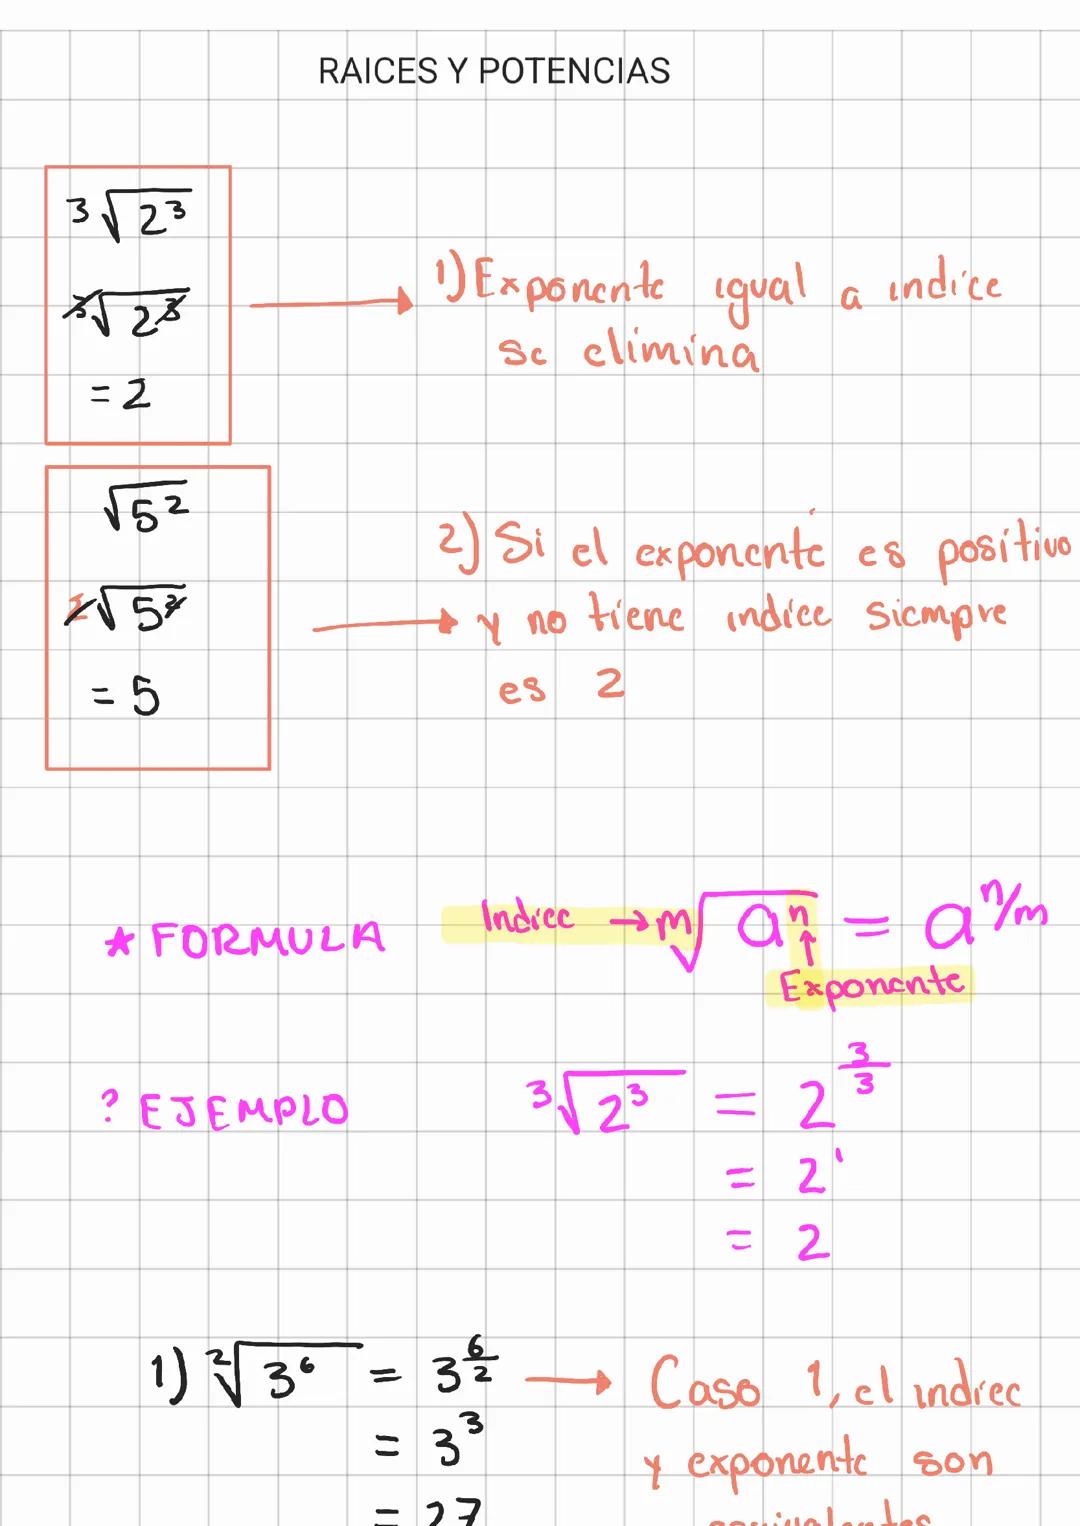 RAICES Y POTENCIAS
³√2³
³√2³
= 2
1) Exponente igual a indice
se elimina
√5²
²√5²
= 5
2) Si el exponente es positivo
y no tiene indice siempre
es 2
* FORMULA Indice → ᵐ√aⁿ = a^n/m
↑
Exponente
? EJEMPLO ³√2³ = 2^3/3
= 2¹
= 2
1) ²√3⁶ = 3^6/2 → Caso 1, el indice
= 3³ y exponente son
= 27 equivalentes